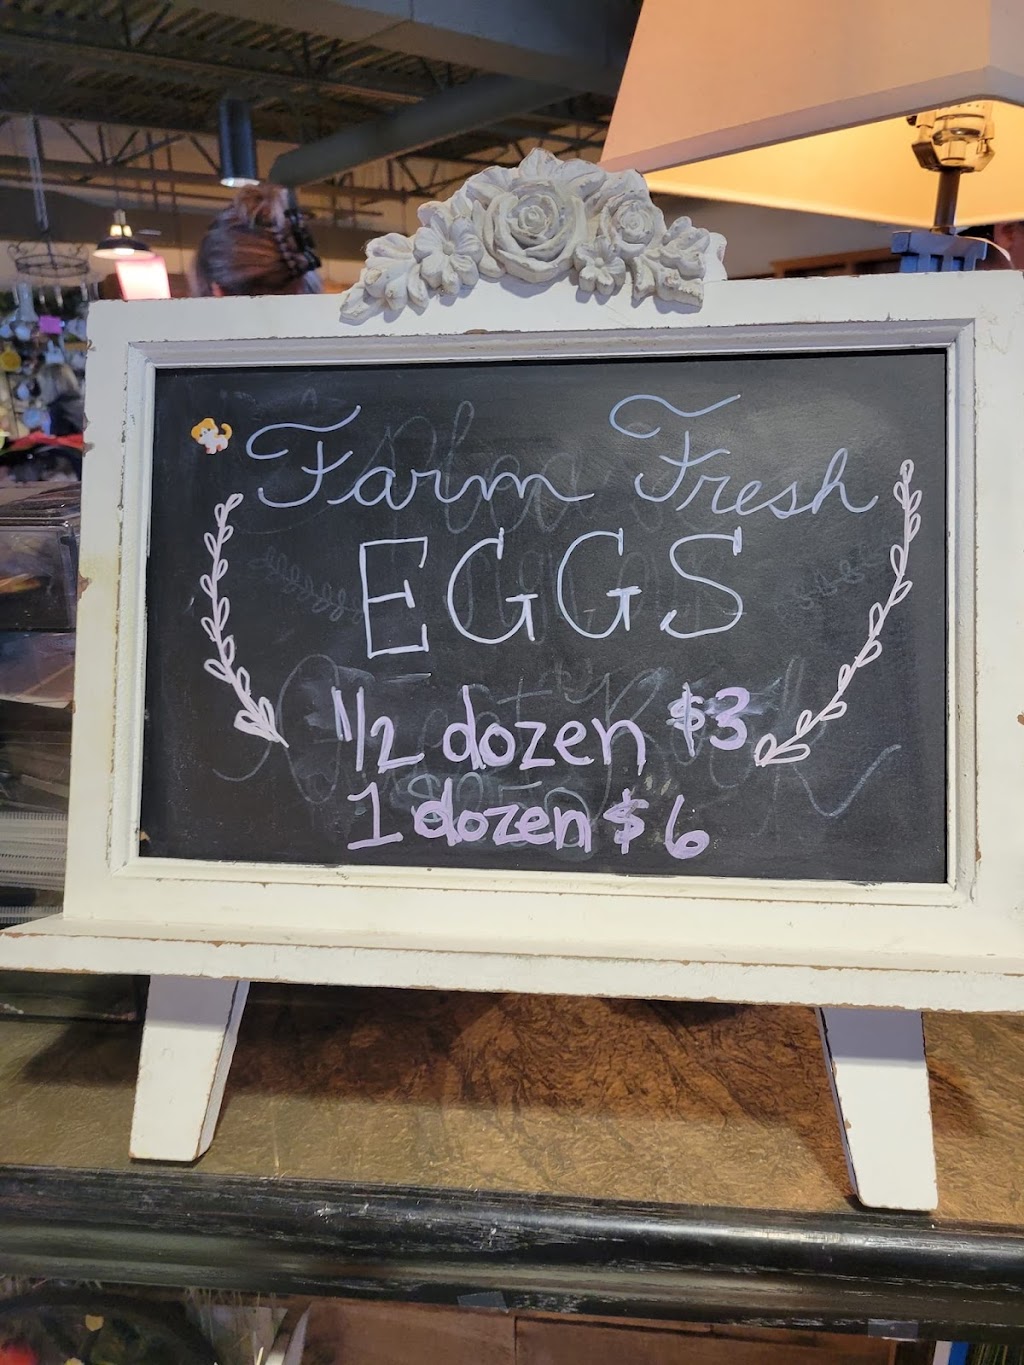 Farm Fresh
EGGS
1/2 dozen $3
1 dozen $6